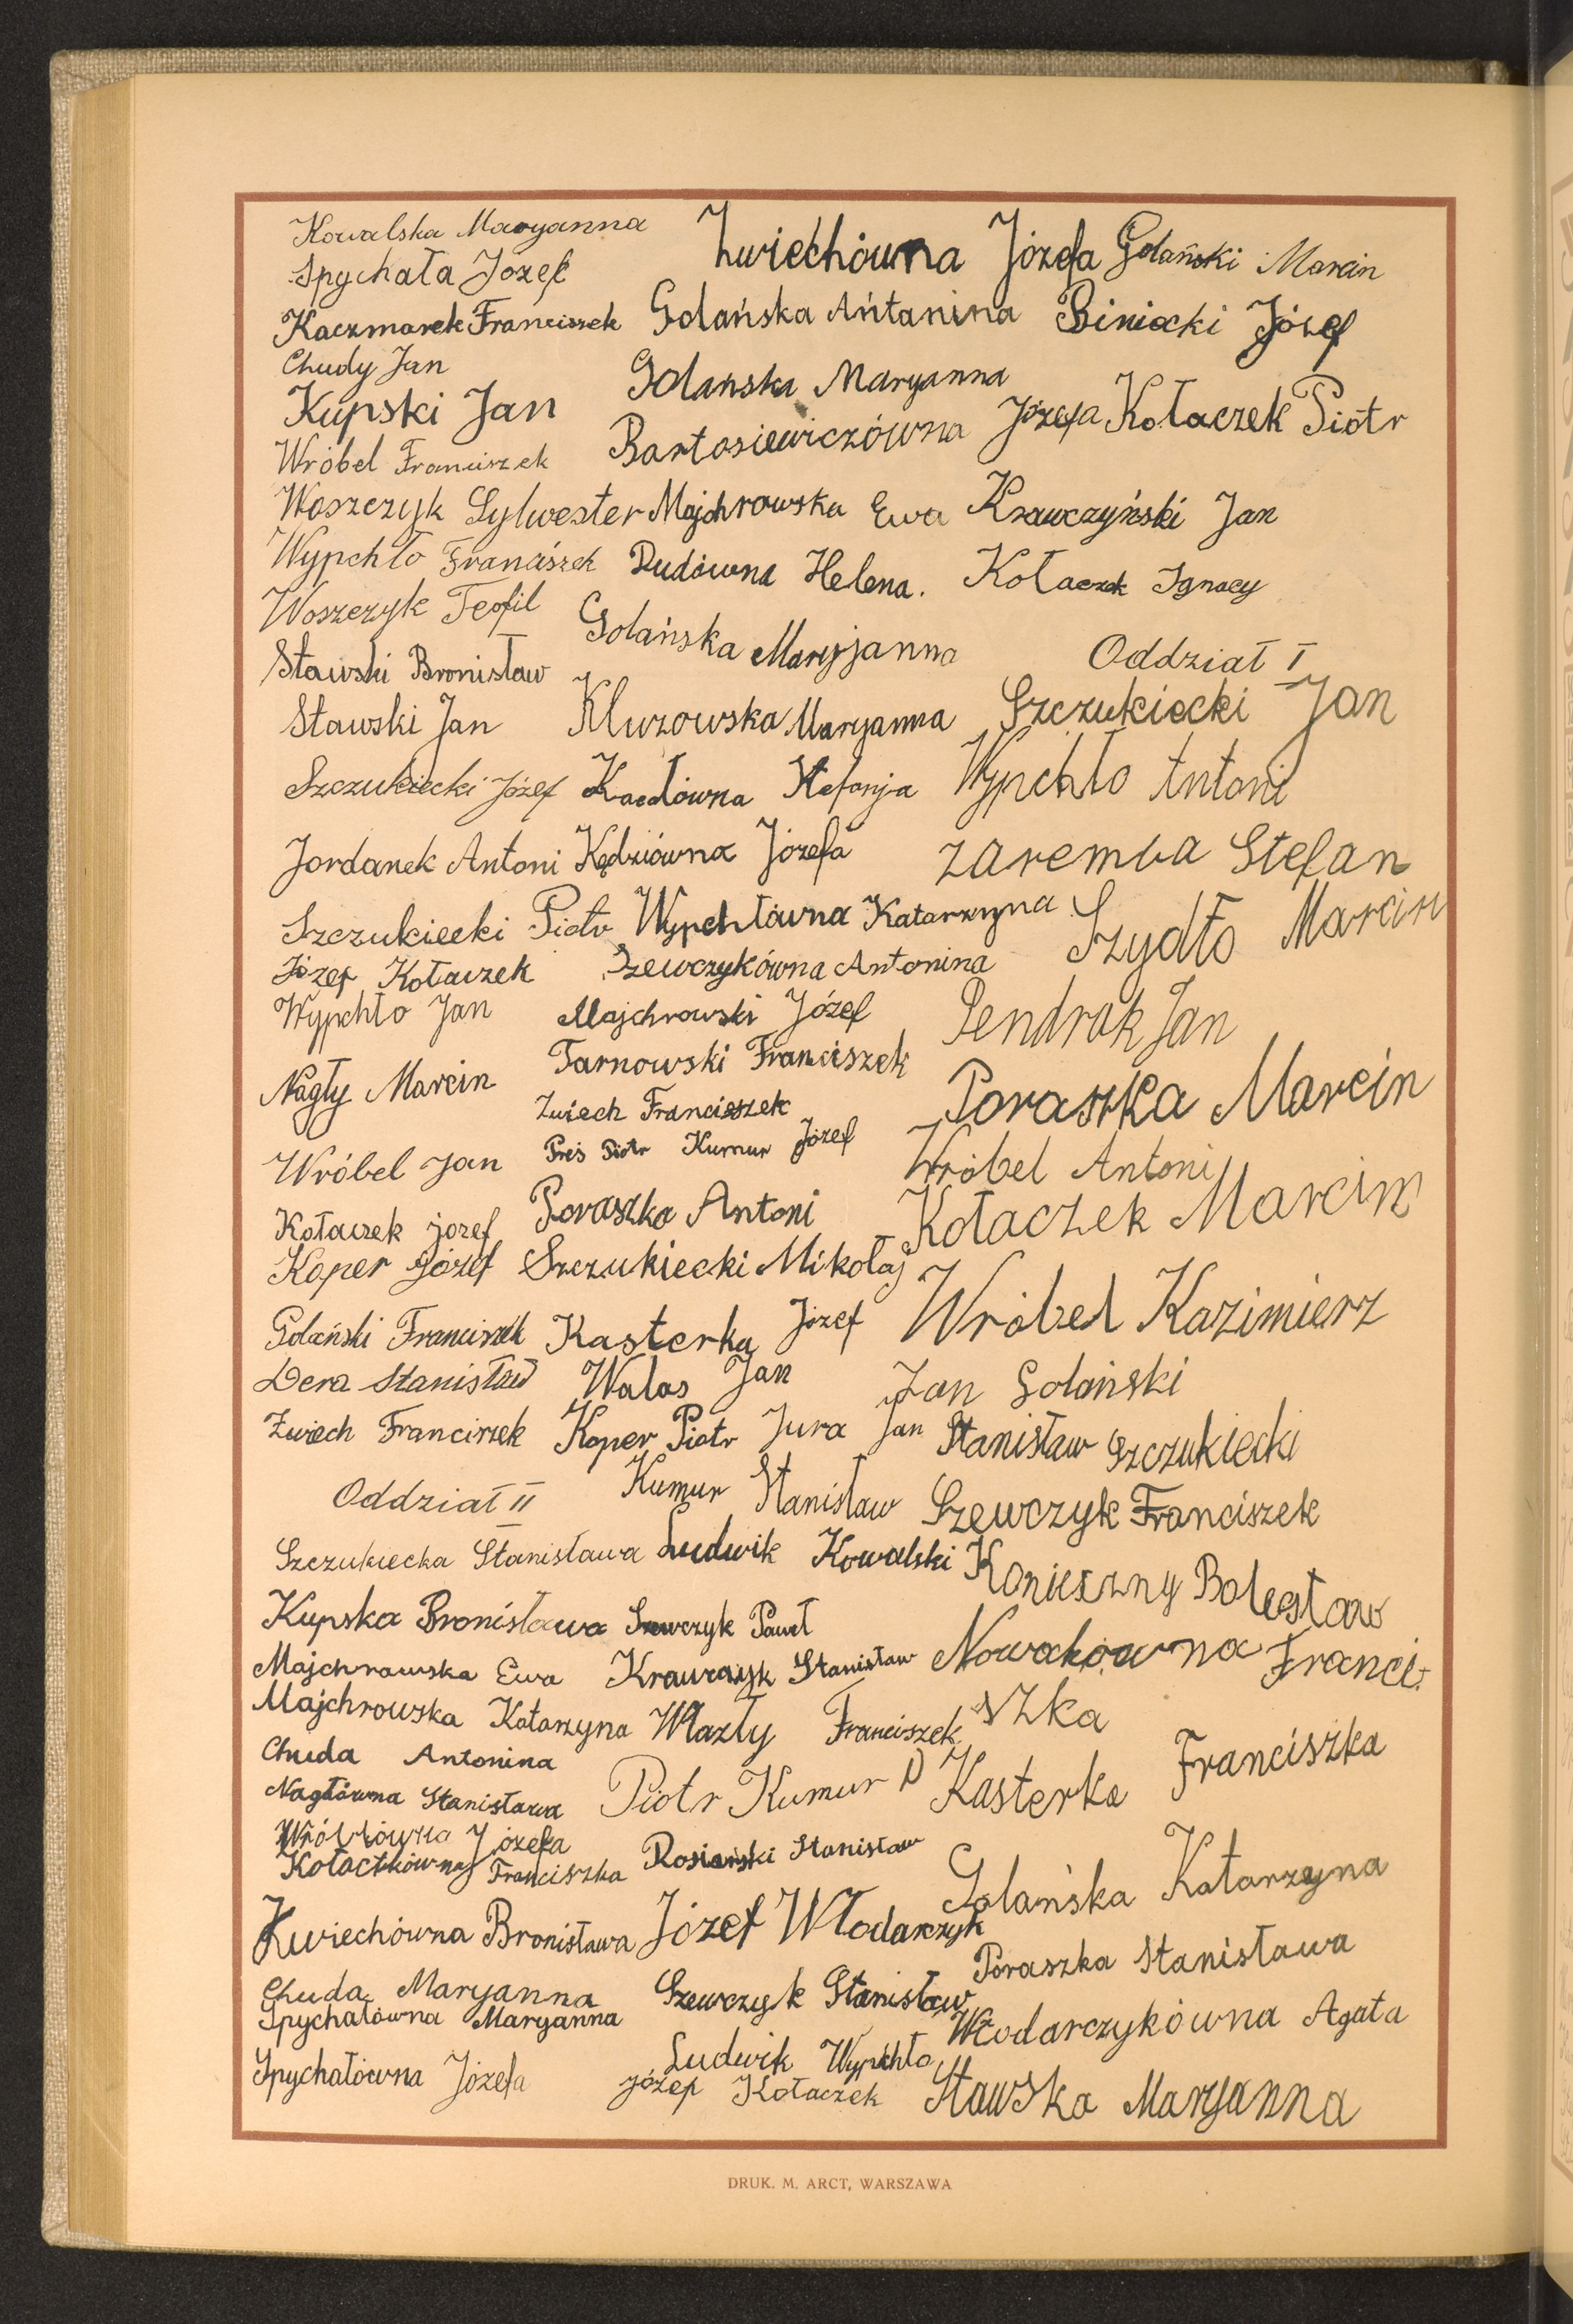 Kowalska Maryanna
Spychała Józef
Kaczmarek Franciszek
Chudy Jan
Kupski Jan
Wróbel Franciszek
Woszczyk Sylwester
Wypchło Franciszek
Woszczyk Teofil
Stawski Bronisław
Stawski Jan
Szczukiecki Józef
Jordanek Antoni
Szczukiecki Piotr
Józef Kołaczek
Wypchło Jan
Nagły Marcin
Wróbel Jan
Kołaczek józef
Koper Józef
Golański Franciszek
Dera Stanisław
Żwiech Franciszek
Oddział II
Szczukiecka Stanisława
Kupska Bronisława
Majchrowska Ewa
Majchrowska Katarzyna
Chuda Antonina
Nagłówna Stanisława
Wróblówna Józefa
Kołaczkówna Franciszka
Żwiechówna Bronisława
Chuda Maryanna
Spychałówna Maryanna
Spychałówna Józefa
Żwiechówna Józefa
Golańska Antanina
Golanska Maryanna
Bartosiewiczówna Józefa
Majchrowska Ewa
Dudówna Helena.
Golańska Maryjanna
Kluzowska Maryanna
Stefanja
Kędziówna Józefa
Wypchłówna Katarzyna
Szewczykówna Antonina
Majchrowski Józef
Tarnowski Franciszek
Żwiech Franciszek
Preś Piotr Kumur Józef
Poraszka Antoni
Szczukiecki Mikołaj
Kasterka Józef
Walas Jan
Koper Piotr Jura Jan
Kumur Stanisław
Ludwik Kowalski
Szewczyk Paweł
Krawczyk Stanisław
Wlazły Franciszek
Piotr Kumur
Rosiański Stanisław
Józef Włodarczyk
Szewczyk Stanisław
Ludwik Wypchło
józef Kołaczek
Golański Marcin
Biniecki Józef
Kołaczek Piotr
Krawczyński Jan
Kołaczek Ignacy
Oddział I
Szczukiecki Jan
Wypchło Antoni
zaremba Stefan
Szydło Marcin
Pendrak Jan
Poraszka Marcin
Wróbel Antoni
Kołaczek Marcin
Wróbel Kazimierz
Jan Golański
Stanisław Szczukiecki
Szewczyk Franciszek
Konieszny Bolesław
Nowakówna Franci-
szka
Kasterka Franciszka
Golańska Katarzyna
Poraszka Stanisława
Włodarczykówna Agata
Stawska Maryanna
DRUK. M. ARCT, WARSZAWA